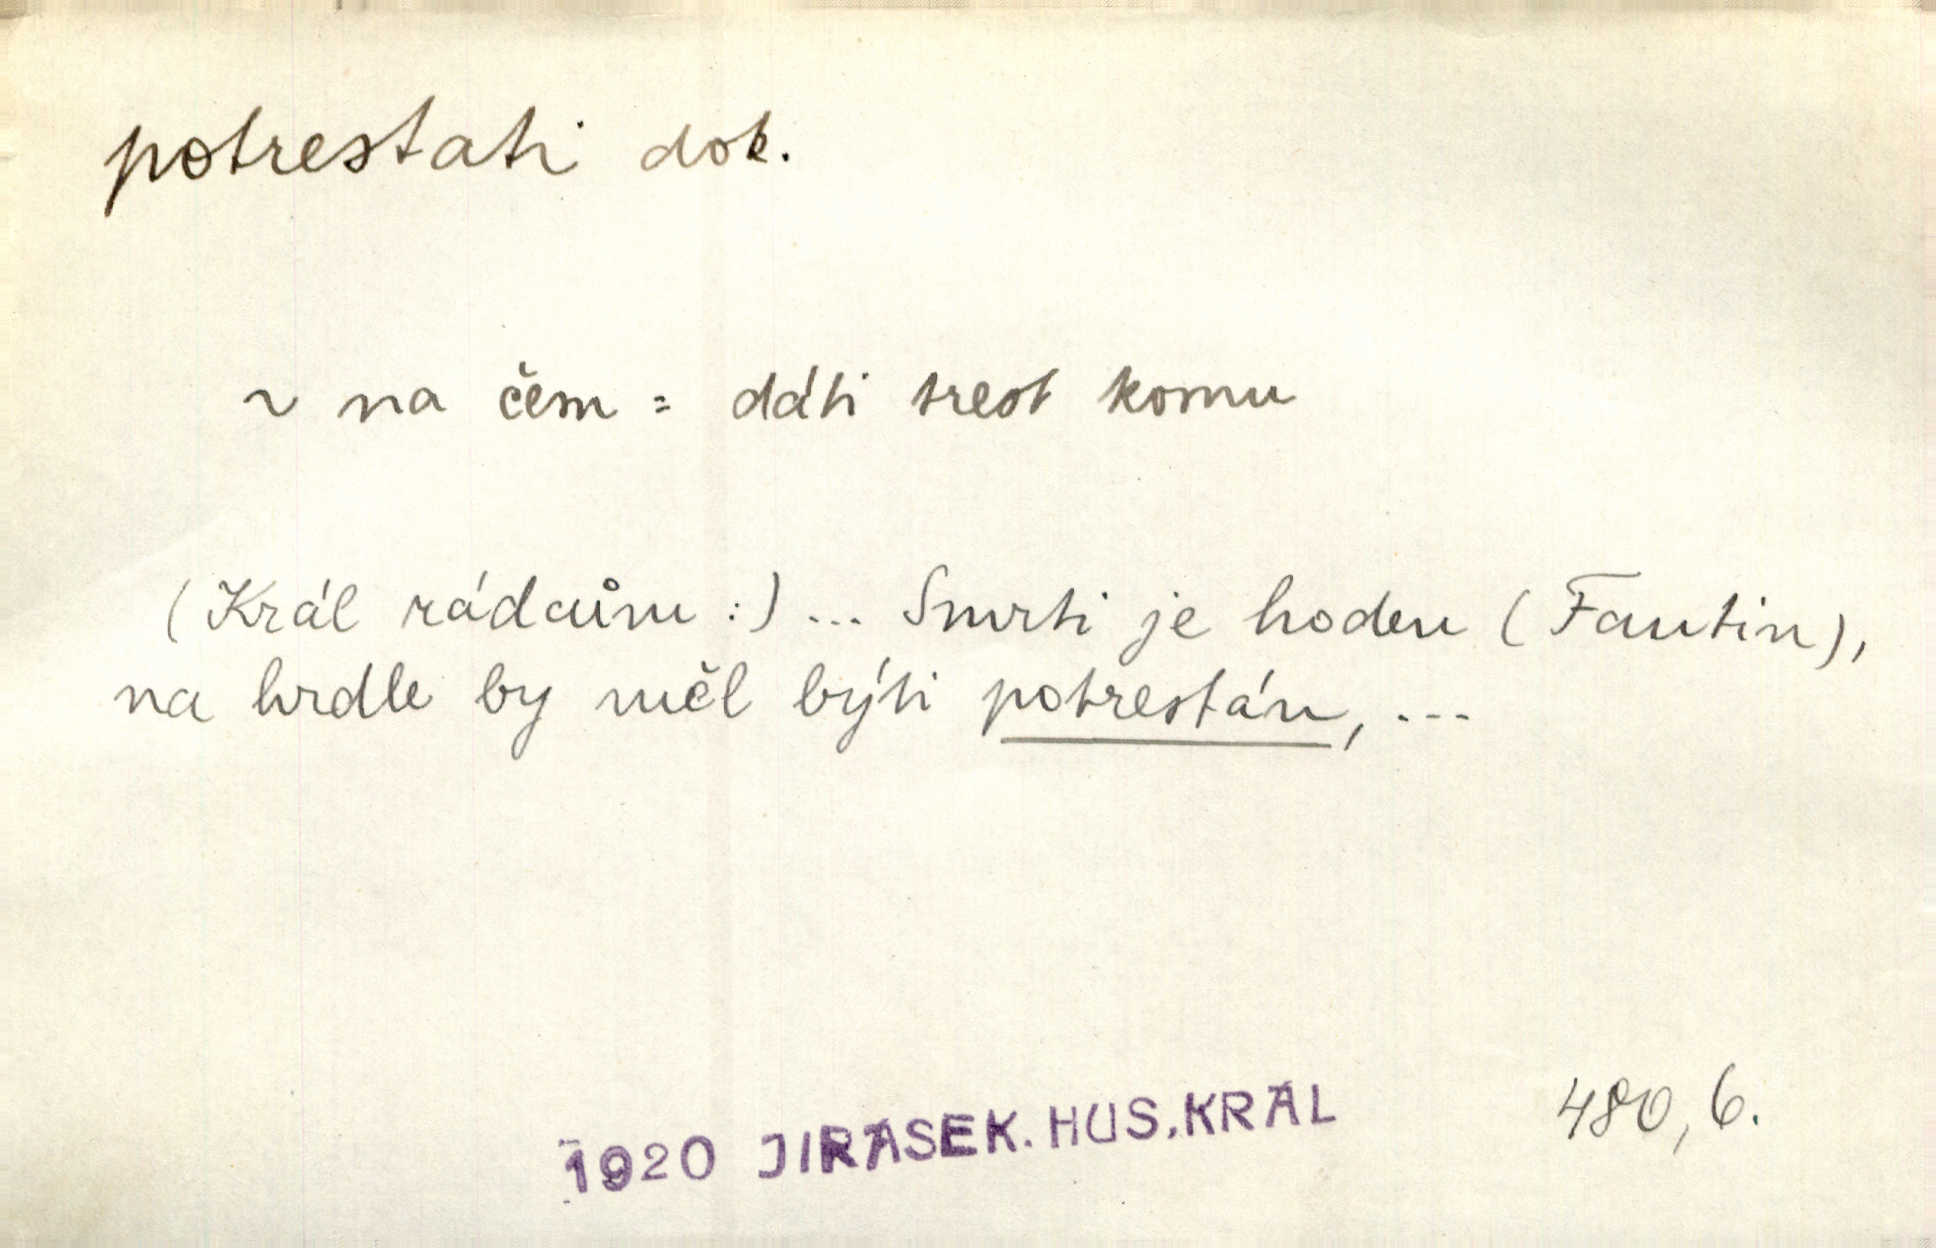 potrestati dok.
~ na čem = dáti trest komu
(Král rádcům :) ... Smrti je hoden (Fantin),
na hrdle by měl býti potrestán, ...
1920 JIRÁSEK. HUS. KRÁL
480, 6.